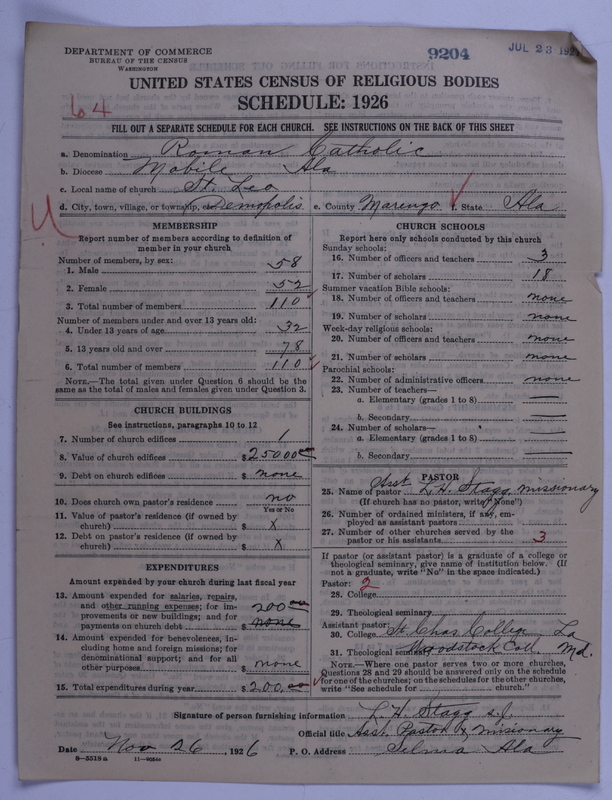 DEPARTMENT OF COMMERCE
BUREAU OF THE CENSUS
WASHINGTON
9204
JUL 23 192
UNITED STATES CENSUS OF RELIGIOUS BODIES
SCHEDULE: 1926
64
FILL OUT A SEPARATE SCHEDULE FOR EACH CHURCH. SEE INSTRUCTIONS ON THE BACK OF THIS SHEET
a. Denomination Roman Catholic
b. Diocese Mobile Ala
c. Local name of church St. Leo
d. City, town, village, or township, or Demopolis e. County Marengo f. State Ala
MEMBERSHIP
Report number of members according to definition of
member in your church
Number of members, by sex:
1. Male 58
2. Female 52
3. Total number of members 110
Number of members under and over 13 years old:
4. Under 13 years of age 32
5. 13 years old and over 78
6. Total number of members 110
NOTE.—The total given under Question 6 should be the
same as the total of males and females given under Question 3.
CHURCH BUILDINGS
See instructions, paragraphs 10 to 12
7. Number of church edifices 1
8. Value of church edifices $ 25000
9. Debt on church edifices $ none
10. Does church own pastor's residence no
Yes or No
11. Value of pastor's residence (if owned by
church) $ X
12. Debt on pastor's residence (if owned by
church) $ X
EXPENDITURES
Amount expended by your church during last fiscal year
13. Amount expended for salaries, repairs,
and other running expenses; for im-
provements or new buildings; and for
payments on church debt $ 200 00 none
14. Amount expended for benevolences, in-
cluding home and foreign missions; for
denominational support; and for all
other purposes $ none
15. Total expenditures during year $ 200.00
CHURCH SCHOOLS
Report here only schools conducted by this church
Sunday schools:
16. Number of officers and teachers 3
17. Number of scholars 18
Summer vacation Bible schools:
18. Number of officers and teachers none
19. Number of scholars none
Week-day religious schools:
20. Number of officers and teachers none
21. Number of scholars none
Parochial schools:
22. Number of administrative officers none
23. Number of teachers—
a. Elementary (grades 1 to 8)
b. Secondary
24. Number of scholars—
a. Elementary (grades 1 to 8)
b. Secondary
PASTOR
Asst
25. Name of pastor L. H. Stagg missionary
(If church has no pastor, write "None")
26. Number of ordained ministers, if any, em-
ployed as assistant pastors
27. Number of other churches served by the
pastor or his assistants 3
If pastor (or assistant pastor) is a graduate of a college or
theological seminary, give name of institution below. (If
not a graduate, write "No" in the space indicated.)
Pastor: 2
28. College
29. Theological seminary
Assistant pastor:
30. College St. Chas College La
31. Theological seminary Woodstock Coll. Md.
NOTE.—Where one pastor serves two or more churches,
Questions 28 and 29 should be answered only on the schedule
for one of the churches; on the schedules for the other churches,
write "See schedule for church."
Signature of person furnishing information L. H. Stagg s.j.
Official title Asst. Pastor & missionary
Date Nov 26, 1926 P. O. Address Selma Ala
8—5518a 11—90544